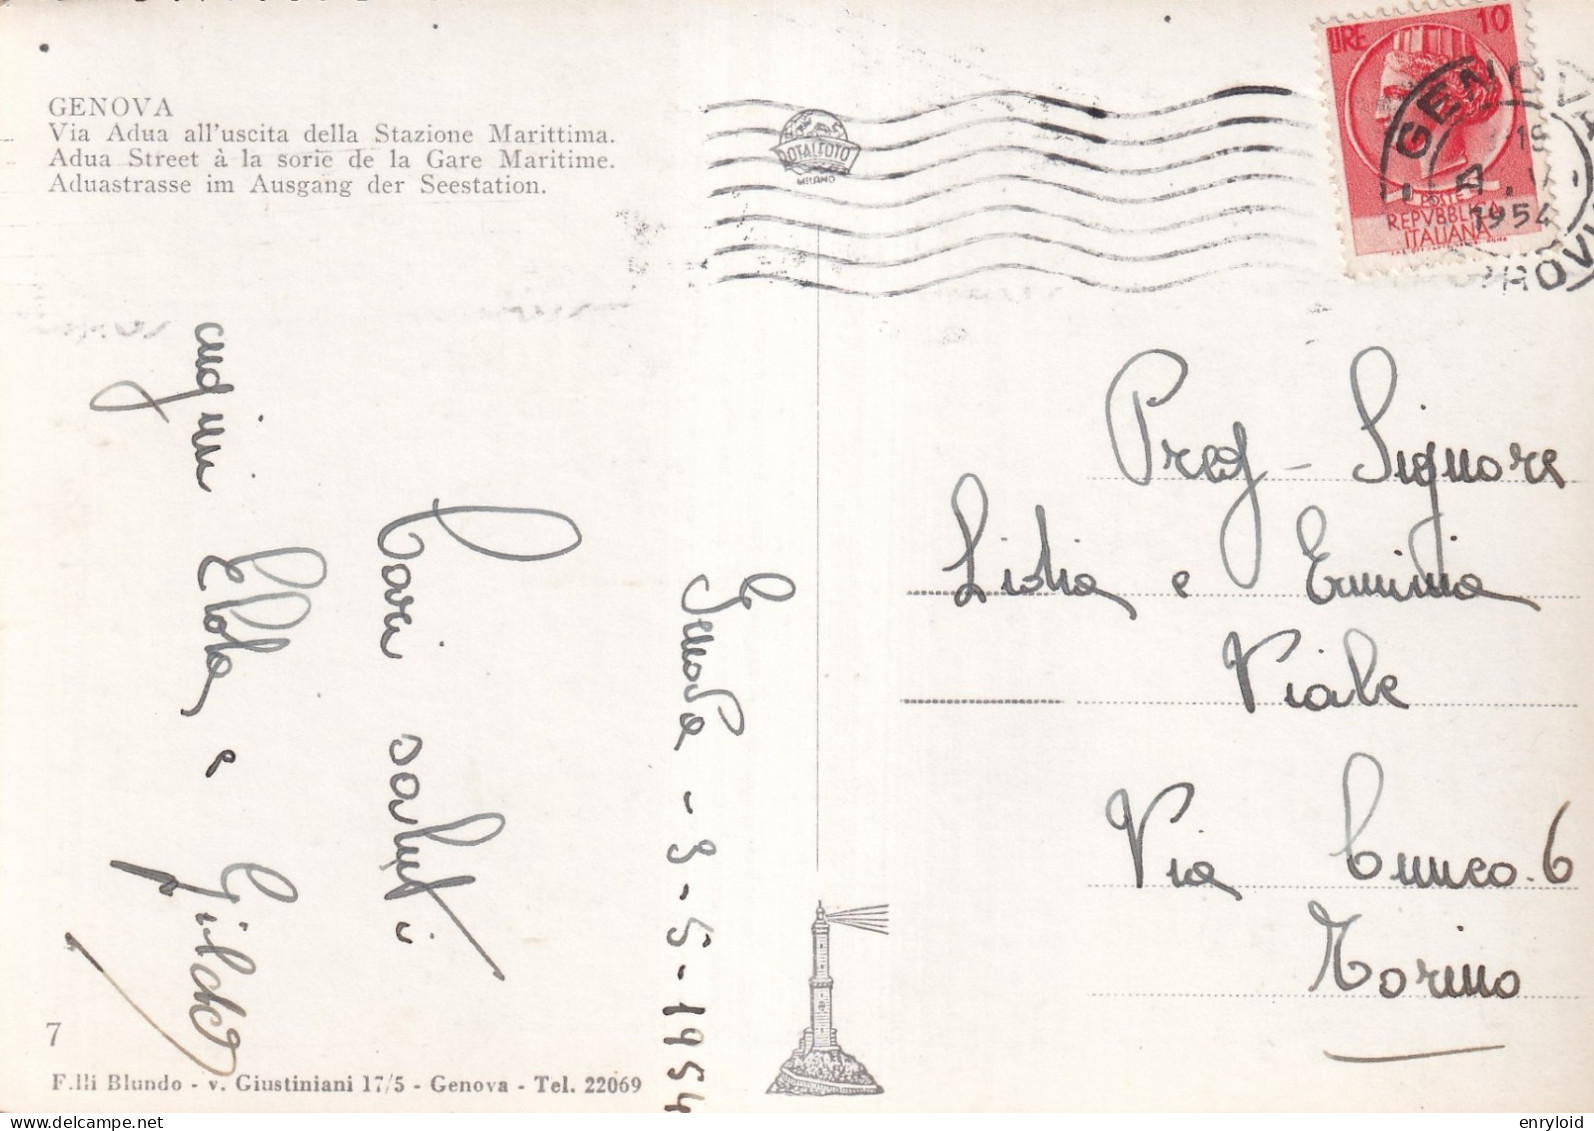 GENOVA
Via Adua all'uscita della Stazione Marittima.
Adua Street à la sorie de la Gare Maritime.
Aduastrasse im Ausgang der Seestation.
ROTALFOTO
MILANO
LIRE 10
POSTE
REPVBBLICA
ITALIANA
GENOVA
1954
Genova - 3-5-1954
Cari saluti
cugini
e Gildo
Preg - Signore
Lidia e Erminia
Viale
Via Cuneo. 6
Torino
7
F.lli Blundo - v. Giustiniani 17/5 - Genova - Tel. 22069
delcampe.net
enryloid